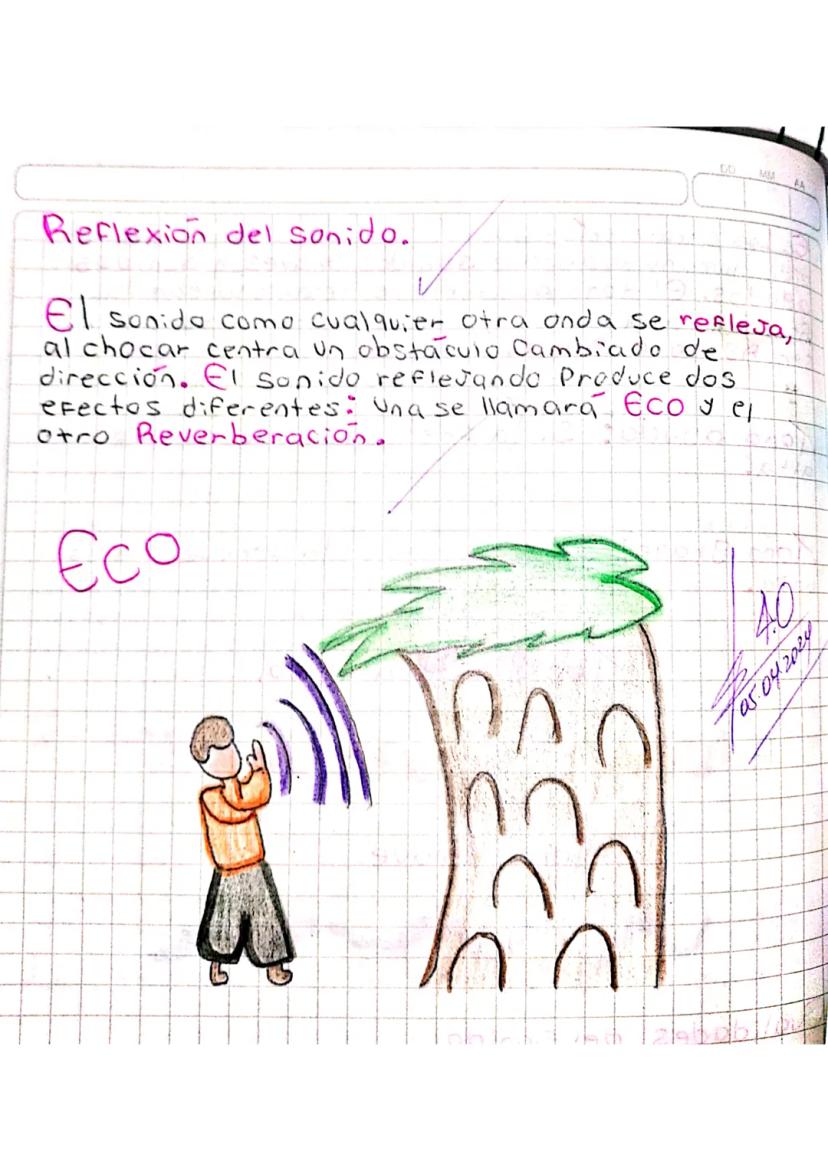 DD MM AA
Reflexión del sonido.
El sonido como cualquier otra onda se refleja,
al chocar centra un obstáculo Cambiado de
dirección. El sonido reflejando Produce dos
efectos diferentes: una se llamará ECO y el
otro Reverberación.
Eco
4.0
05.04.2024